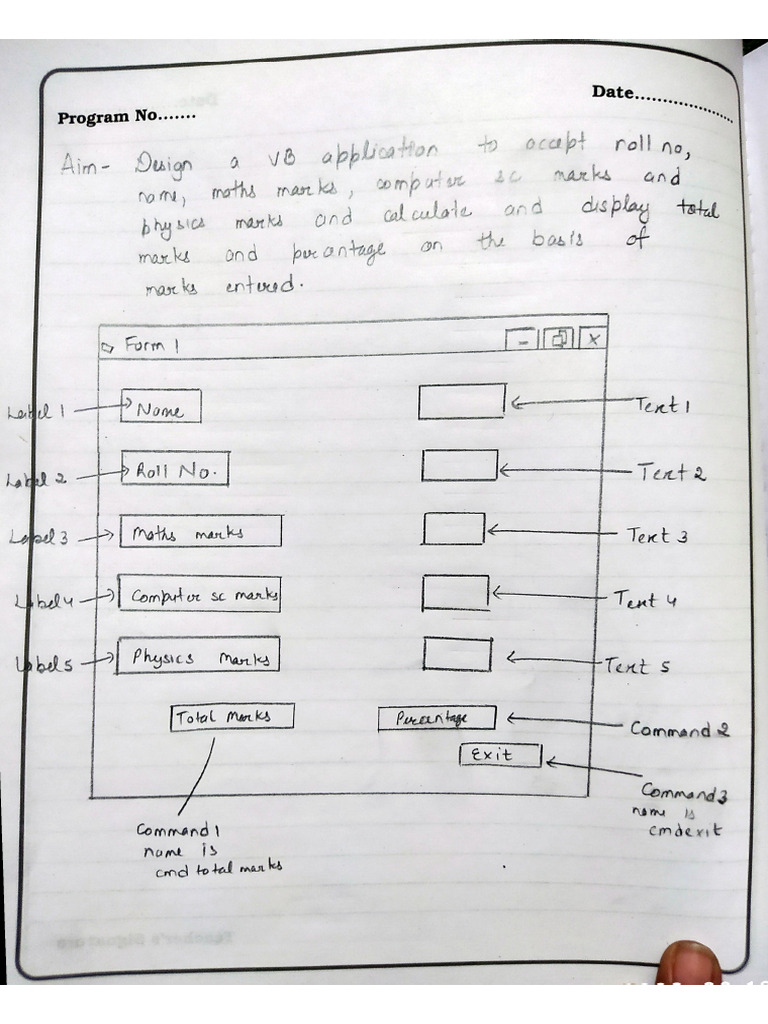 Date....................
Program No.......
Aim- Design a VB application to accept roll no,
name, maths marks, computer sc marks and
physics marks and calculate and display total
marks and percantage on the basis of
marks entered.
Form 1
Label 1
Name
Text 1
Label 2
Roll No.
Text 2
Label 3
Maths marks
Text 3
Label 4
Computer sc marks
Text 4
Label 5
Physics marks
Text 5
Total Marks
Percentage
Command 2
Exit
Command 3
name is
cmdexit
Command 1
name is
cmd total marks
Teacher's Signature